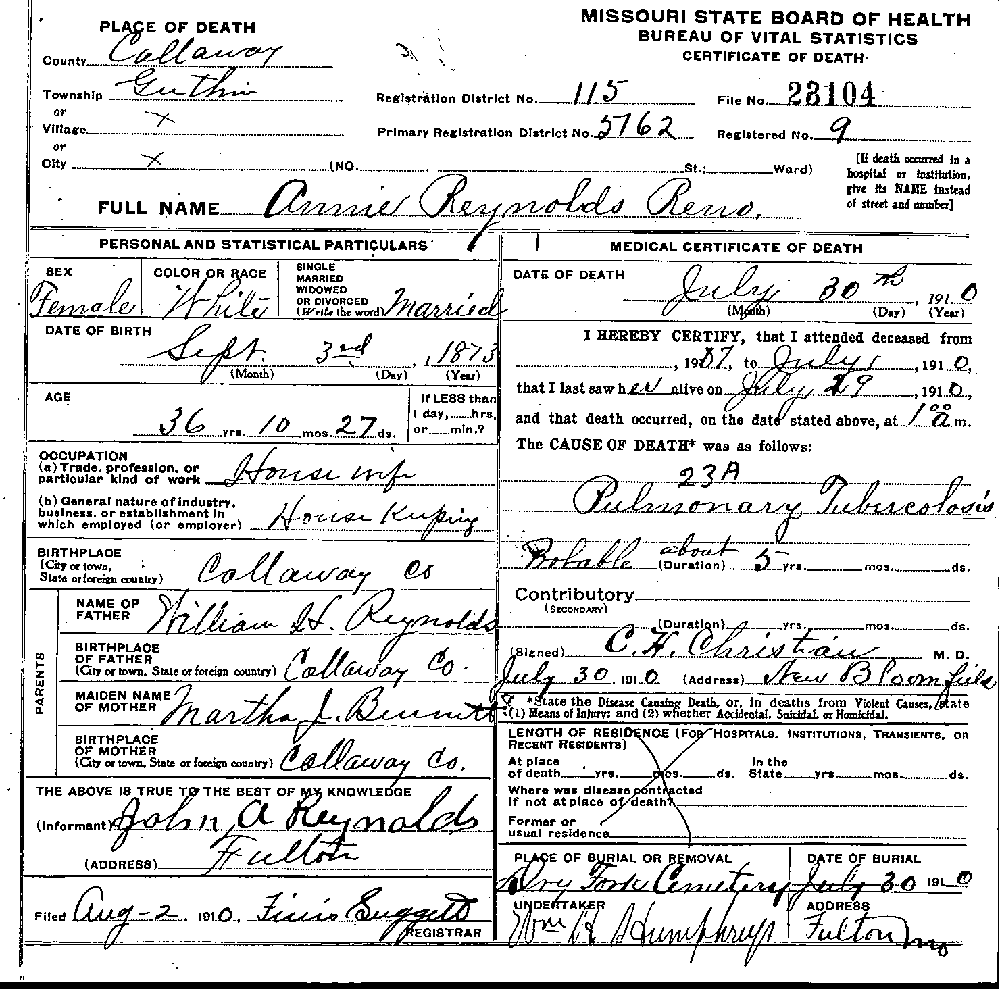 MISSOURI STATE BOARD OF HEALTH
BUREAU OF VITAL STATISTICS
CERTIFICATE OF DEATH
PLACE OF DEATH
County Callaway
Township Guthrie
or
Village X
or
City X (NO. St.; Ward)
Registration District No. 115 File No. 23104
Primary Registration District No. 5762 Registered No. 9
[If death occurred in a
hospital or institution,
give its NAME instead
of street and number]
FULL NAME Annie Reynolds Reno.
PERSONAL AND STATISTICAL PARTICULARS
SEX
Female
COLOR OR RACE
White
SINGLE
MARRIED
WIDOWED
OR DIVORCED
(Write the word) Married
DATE OF BIRTH
Sept. 3rd, 1873
(Month) (Day) (Year)
AGE
36 yrs. 10 mos. 27 ds.
If LESS than
1 day, hrs.
or min.?
OCCUPATION
(a) Trade, profession, or
particular kind of work House wife
(b) General nature of industry,
business, or establishment in
which employed (or employer) House Keeping
BIRTHPLACE
(City or town,
State or foreign country) Callaway Co
PARENTS
NAME OF
FATHER William H. Reynolds
BIRTHPLACE
OF FATHER
(City or town, State or foreign country) Callaway Co.
MAIDEN NAME
OF MOTHER Martha J. Bennett
BIRTHPLACE
OF MOTHER
(City or town, State or foreign country) Callaway Co.
THE ABOVE IS TRUE TO THE BEST OF MY KNOWLEDGE
(Informant) John A Reynolds
(ADDRESS) Fulton
Filed Aug-2 1910. Finis Suggett
REGISTRAR
MEDICAL CERTIFICATE OF DEATH
DATE OF DEATH
July 30th, 1910
(Month) (Day) (Year)
I HEREBY CERTIFY, that I attended deceased from
, 1907, to July, 1910,
that I last saw her alive on July 29, 1910,
and that death occurred, on the date stated above, at 1 00 a m.
The CAUSE OF DEATH* was as follows:
23A
Pulmonary Tubercolosis
Probable about
(Duration) 5 yrs. mos. ds.
Contributory
(SECONDARY)
(Duration) yrs. mos. ds.
(Signed) C. H. Christian M. D.
July 30 1910 (Address) New Bloomfield
*State the Disease Causing Death, or, in deaths from Violent Causes, state
(1) Means of Injury; and (2) whether Accidental, Suicidal, or Homicidal.
LENGTH OF RESIDENCE (FOR HOSPITALS, INSTITUTIONS, TRANSIENTS, OR
RECENT RESIDENTS)
At place
of death yrs. mos. ds.
In the
State yrs. mos. ds.
Where was disease contracted
if not at place of death?
Former or
usual residence
PLACE OF BURIAL OR REMOVAL
Dry Fork Cemetery
DATE OF BURIAL
July 30 1910
UNDERTAKER
Wm H Humphreys
ADDRESS
Fulton Mo